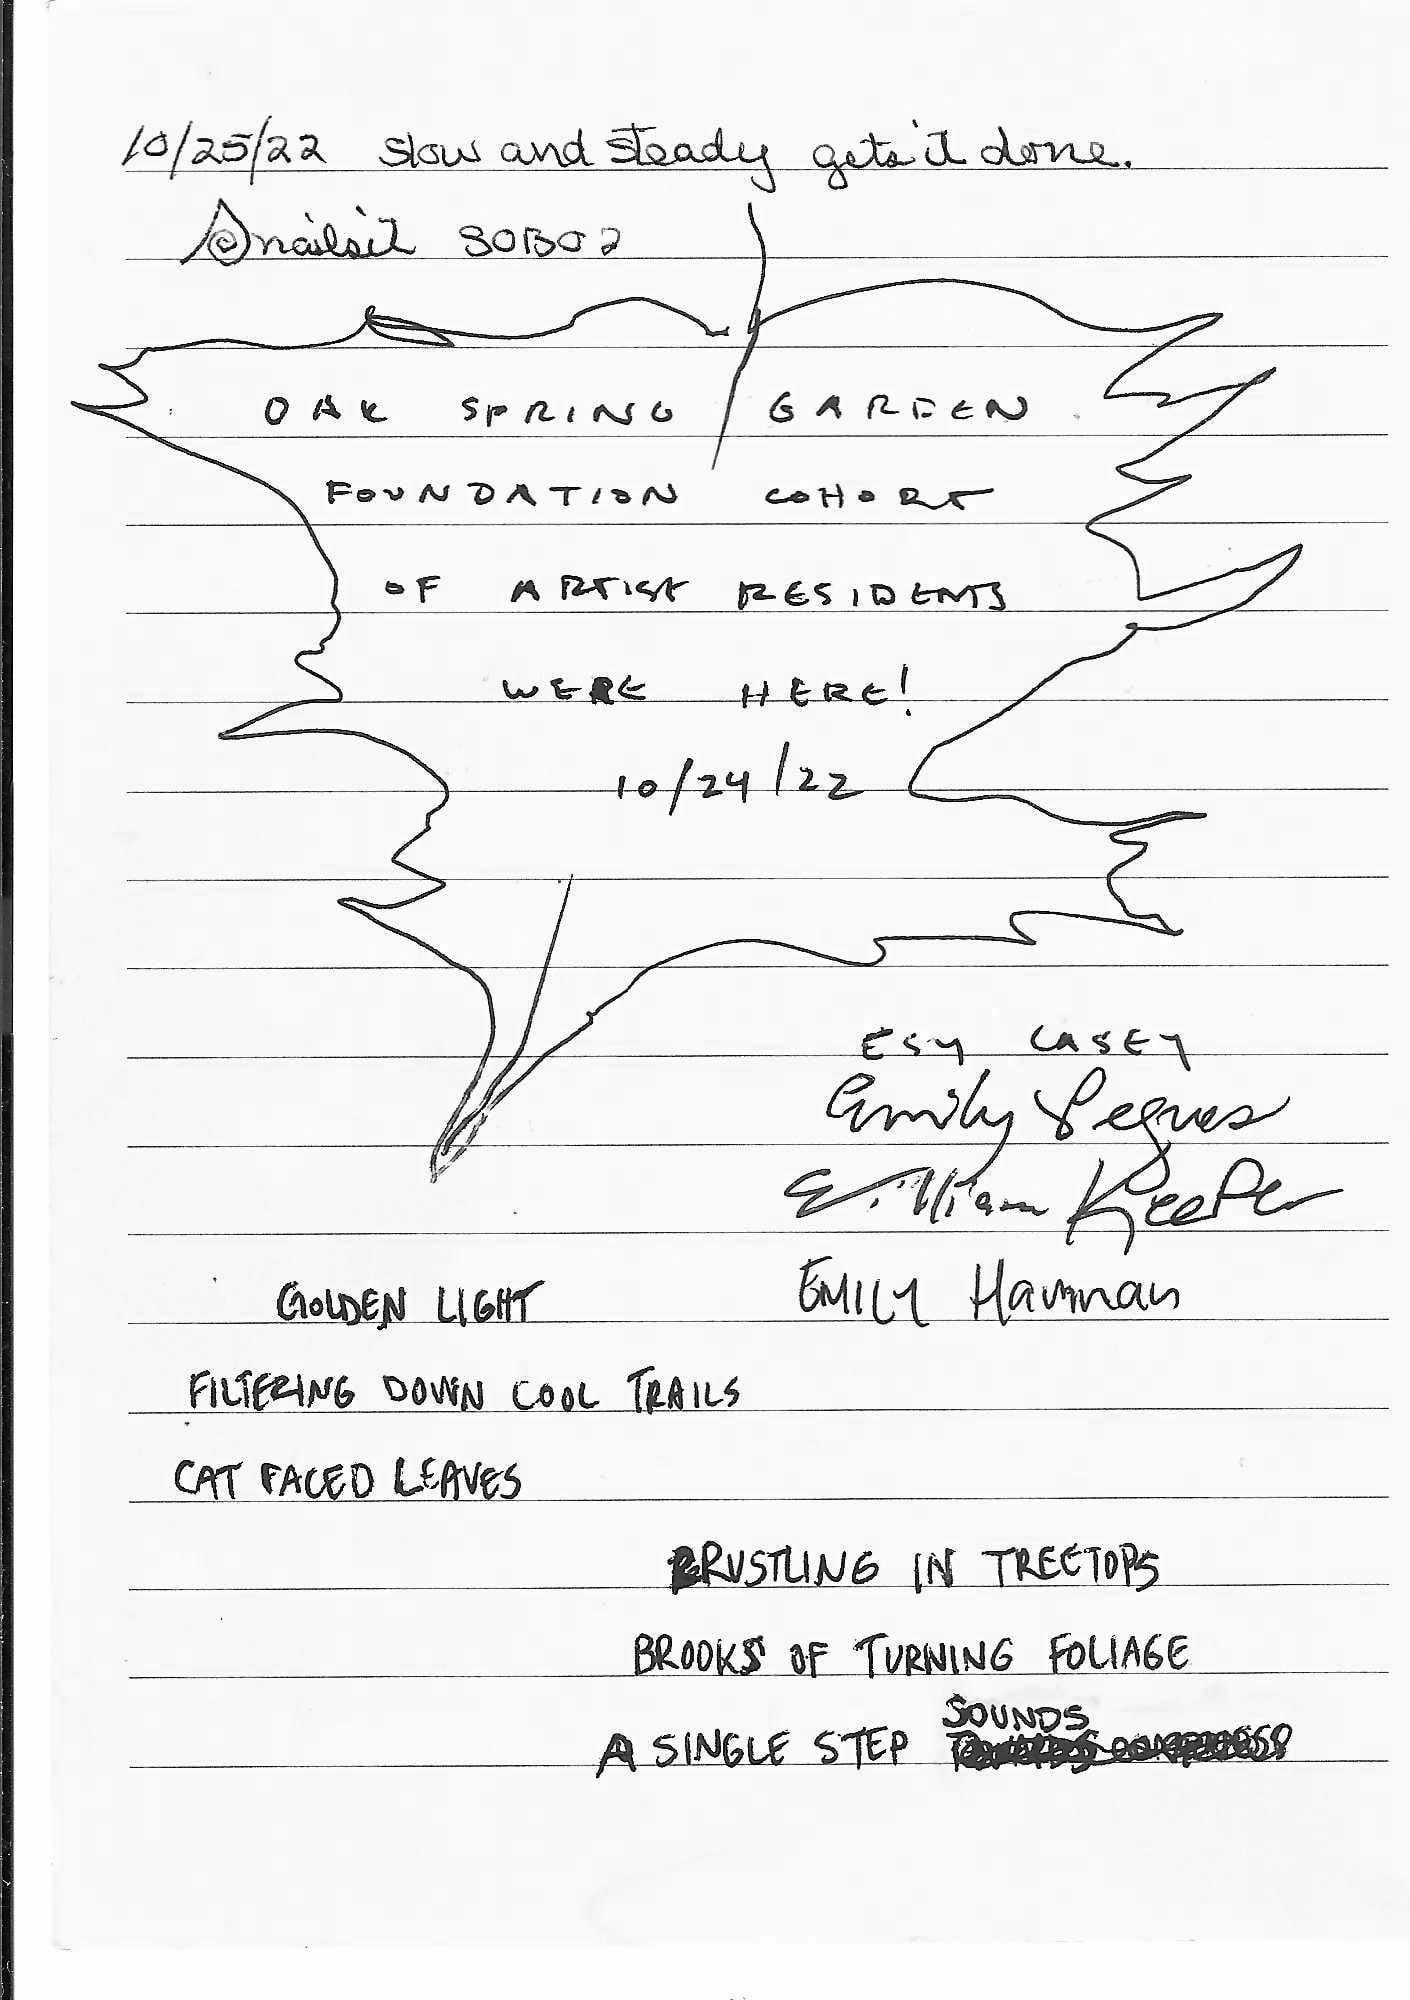 10/25/22 slow and steady gets it done.
Snailsit SOBO2
OAK SPRING GARDEN
FOUNDATION COHORT
OF ARTIST RESIDENTS
WERE HERE!
10/24/22
ESY CASEY
Emily
William Keeper
EMILY
GOLDEN LIGHT
FILTERING DOWN COOL TRAILS
CAT FACED LEAVES
RUSTLING IN TREETOPS
BROOKS OF TURNING FOLIAGE
A SINGLE STEP SOUNDS